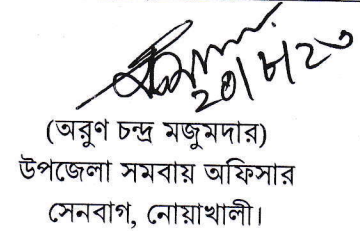 ২০/৮/২৩
(অরুণ চন্দ্র মজুমদার)
উপজেলা সমবায় অফিসার
সেনবাগ, নোয়াখালী।